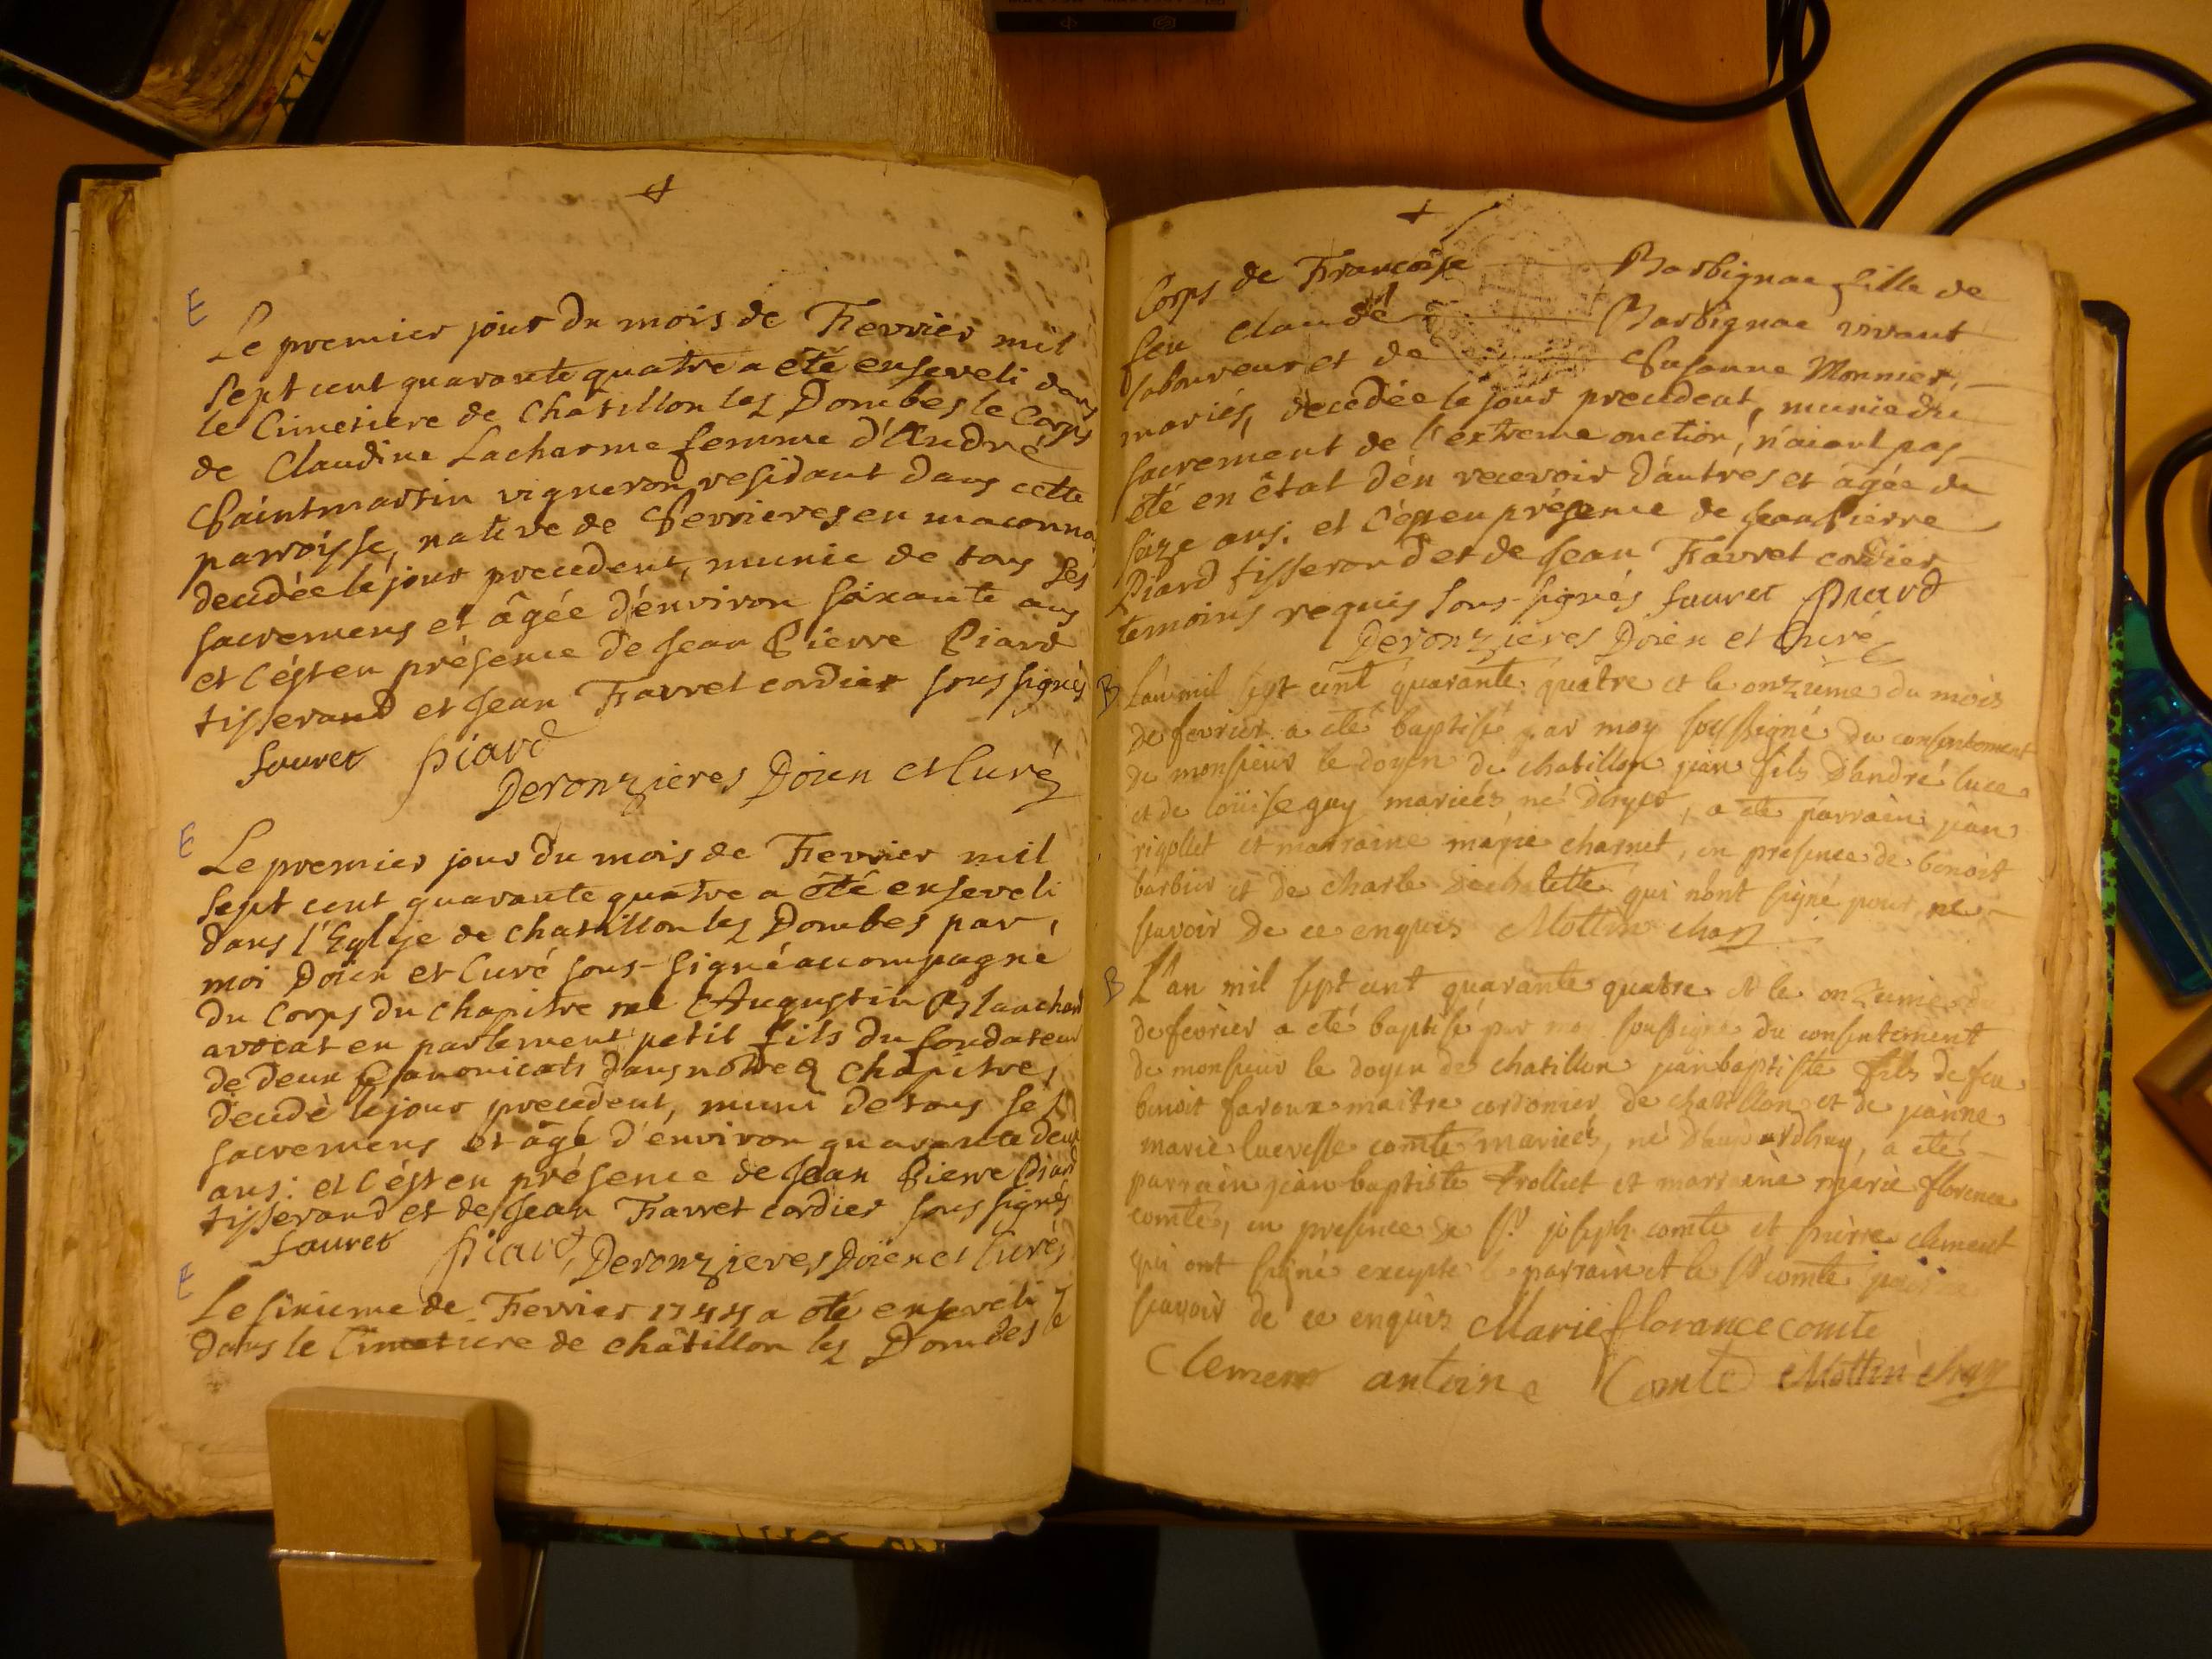 E
Le premier jour du mois de Fevrier mil
sept cent quarante quatre a été enseveli dans
le Cimetiere de Chatillon les Dombes le Corps
de Claudine Lacharme femme d'André
Saintmartin vigneron residant dans cette
parroisse, native de Serrieres en maconnai
decedée le jour precedent, munie de tous ses
sacremens et âgée d'environ soixante ans
et c'ést en présence de Jean Pierre Piard
tisserand et Jean Favret cordier sous signés
favret piard
Deronzieres Doien et Curé
E
Le premier jour du mois de Fevrier mil
sept cent quarante quatre a été enseveli
dans l'Eglise de chatillon les Dombes par
moi Doien et Curé sous-signé accompagné
du Corps du chapitre Augustin Blanchard
avocat en parlement petit fils du fondateur
de deux Canonicats dans nôtre chapitre,
decedé le jour precedent, muni de tous ses
sacremens et âgé d'énviron quarante deux
ans: et c'ést en présence de Jean Pierre Piard
tisserand et de Jean Favret cordier sous signés
favret piard, Deronzieres Doien et Curé
E
Le sixieme de Fevrier 1744 a été enseveli
dans le Cimetiere de châtillon les Dombes le
Corps de Francoise Barbignac fille de
feu Claude Barbignac vivant
laboureur et de Susanne Monnier,
mariés, decedée le jour precedent, munie du
sacrement de l'extreme onction, n'aiant pas
été en êtat d'én recevoir d'autres et âgée de
seize ans. et c'ést en présence de Jean Pierre
Piard tisserand et de Jean Favret cordier
temoins requis sous-signés favret piard
Deronzieres Doien et Curé
B
L'an mil sept cent quarante quatre et le onzieme du mois
de fevrier a eté baptisé par moy soussigné du consentement
de monsieur le doyen de chatillon jean fils d'andré luce
et de loüise guy mariées né d'hyer, a eté parrain jean
rigollet et marraine marie charnet, en presence de benoit
barbier et de charle dechalette qui n'ont signé pour ne
scavoir de ce enquis Mottin chan
B
L'an mil sept cent quarante quatre et le onzieme du
de fevrier a eté baptisé par moy soussigné du consentement
de monsieur le doyen de chatillon jean baptiste fils de feu
benoit faroux maitre cordonier de chatillon et de jeanne
marie lucresse comte mariées, né d'aujourdhuy, a eté
parrain jean baptiste trolliet et marraine marie florence
comte, en presence de Sr. joseph comte et pierre clement
qui ont signé excepté le parrain et le Sr comte pour ne
scavoir de ce enquis Marie florance comte
Clement antoine Comte Mottin chan